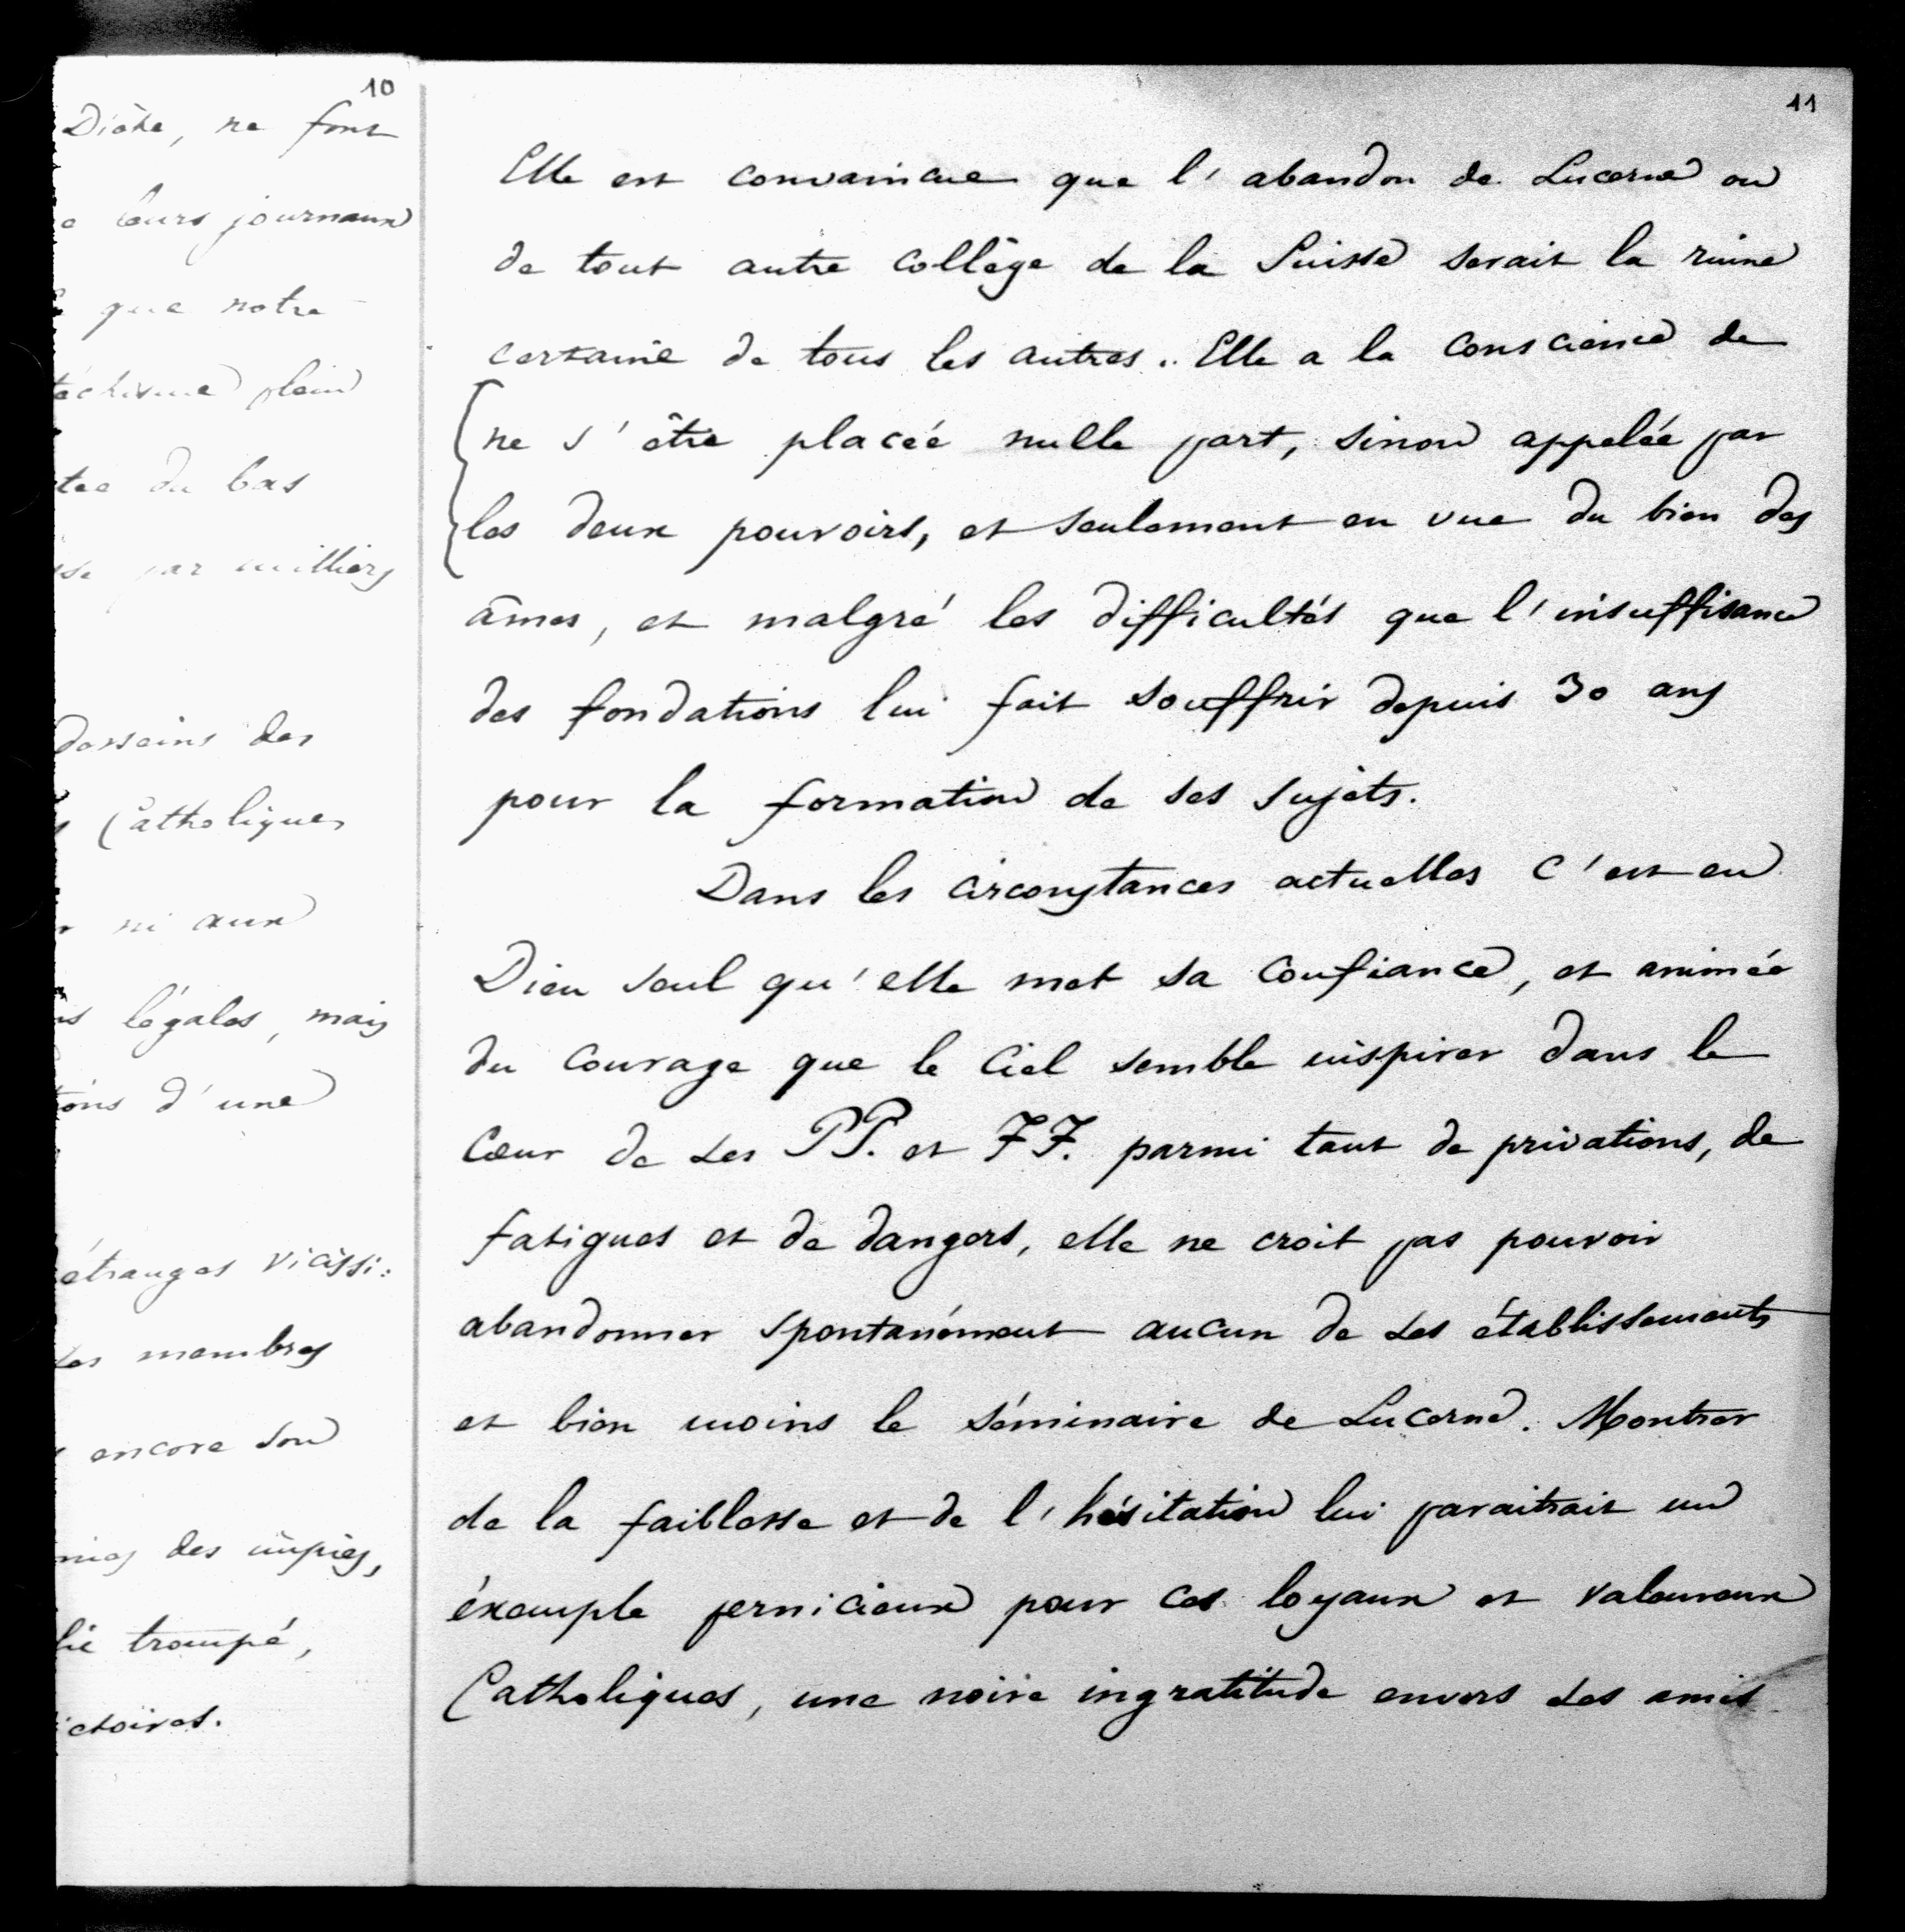 10
Diète, ne font
leurs journaux
que notre
plein
du bas
par milliers
desseins des
Catholiques
ni aux
légales, mais
d'une
étranges vicissi:
membres
encore son
des impies,
trompé,
11
Elle est convaincue que l'abandon de Lucerne ou
de tout autre collège de la Suisse serait la ruine
certaine de tous les autres. Elle a la conscience de
ne s'être placée nulle part, sinon appelée par
les deux pouvoirs, et seulement en vue du bien des
âmes, et malgré les difficultés que l'insuffisance
des fondations lui fait souffrir depuis 30 ans
pour la formation de ses sujets.
Dans les circonstances actuelles c'est en
Dieu seul qu'elle met sa confiance, et animée
du courage que le Ciel semble inspirer dans le
Cœur de ses PP. et FF. parmi tant de privations, de
fatigues et de dangers, elle ne croit pas pouvoir
abandonner spontanément aucun de ses établissements
et bien moins le séminaire de Lucerne. Montrer
de la faiblesse et de l'hésitation lui paraitrait un
éxemple pernicieux pour ces loyaux et valeureux
Catholiques, une noire ingratitude envers des amis